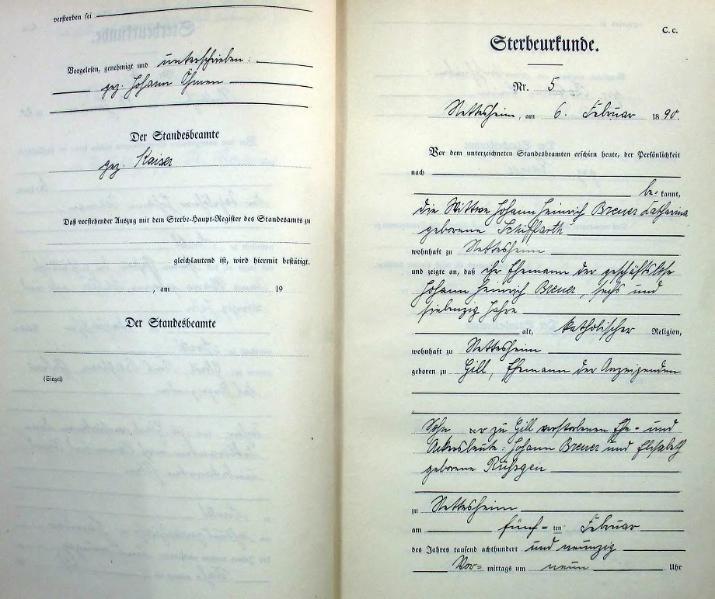 verstorben sei
Vorgelesen, genehmigt und unterschrieben:
gez. Johann Esmen
Der Standesbeamte
gez. Kaiser
Daß vorstehender Auszug mit dem Sterbe-Haupt-Register des Standesamts zu
gleichlautend ist, wird hiermit bestätigt.
, am 19
Der Standesbeamte
(Siegel)
C. c.
Sterbeurkunde.
Nr. 5
Nettesheim, am 6. Februar 1890.
Vor dem unterzeichneten Standesbeamten erschien heute, der Persönlichkeit
nach
be- kannt,
die Wittwe Johann Heinrich Breuer Katharina
geborene Schifflarth
wohnhaft zu Nettesheim
und zeigte an, daß ihr Ehemann der geschäftslose
Johann Heinrich Breuer, sechs und
siebenzig Jahre
alt, katholischer Religion,
wohnhaft zu Nettesheim
geboren zu Gill, Ehemann der Anzeigenden
Sohn der zu Gill verstorbenen Ehe- und
Ackersleute: Johann Breuer und Elisabeth
geborene Rüsgen
zu Nettesheim
am fünf- ten Februar
des Jahres tausend achthundert und neunzig
Vor= mittags um neun Uhr